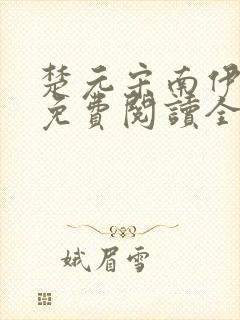 楚元宗南伊
免費閱讀全
娥眉雪